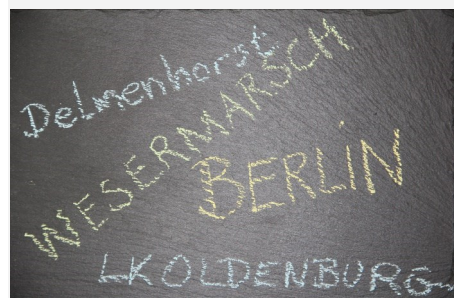 Delmenhorst
WESERMARSCH
BERLiN
LKOLDENBURG